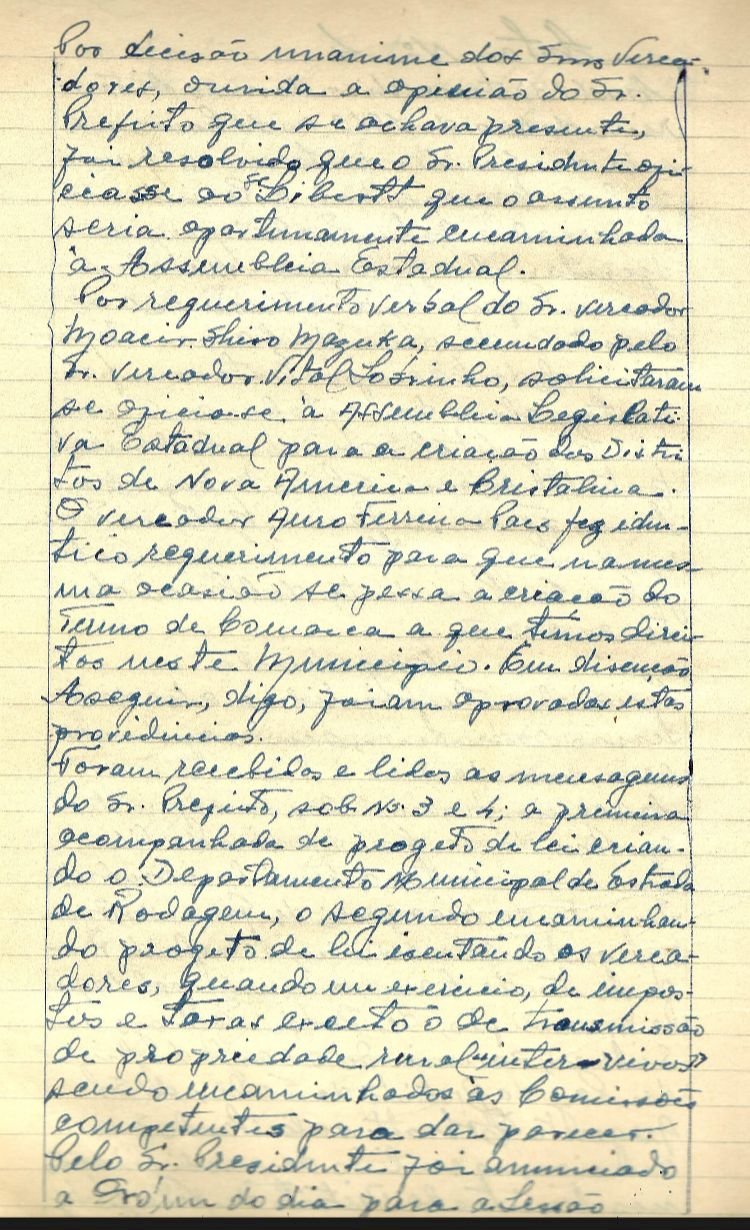 Por decisão unanime dos Snrs Verea-
dores, ouvida a opinião do Sr.
Prefeito que se achava presente,
foi resolvido que o Sr. Presidente ofi-
ciasse ao Sr que o assunto
seria oportunamente encaminhada
à Assembleia Estadual.
Por requerimento verbal do Sr. vereador
Moacir Shiro Mazuka, secundado pelo
Sr. vereador Vital Sobrinho, solicitaram
se oficiase à Assembleia Legislati-
va Estadual para a criação dos Distri
tos de Nova America e Cristalina.
O vereador Auro Ferreira Paes fez idin-
tico requerimento para que na mes
ma ocasião se pessa a criação do
Termo de Comarca a que temos direi
tos neste Municipio. Em discução
Aseguir, digo, foram aprovadas estas
providincias.
Foram recebidos e lidos as mensagens
do Sr. Prefeito, sob Ns. 3 e 4; a primeira
acompanhada de progeto de lei crian-
do o Departamento Municipal de Estrada
de Rodagem, o segundo encaminhan-
do progeto de lei isentando os verea-
dores, quando em exercicio, de impos-
tos e taxas exceto o de transmissão
de propriedade rural "inter-vivos"
sendo encaminhados às Comissões
competentes para dar parecer.
Pelo Sr. Presidente foi anunciado
a Ordem do dia para a Sessão